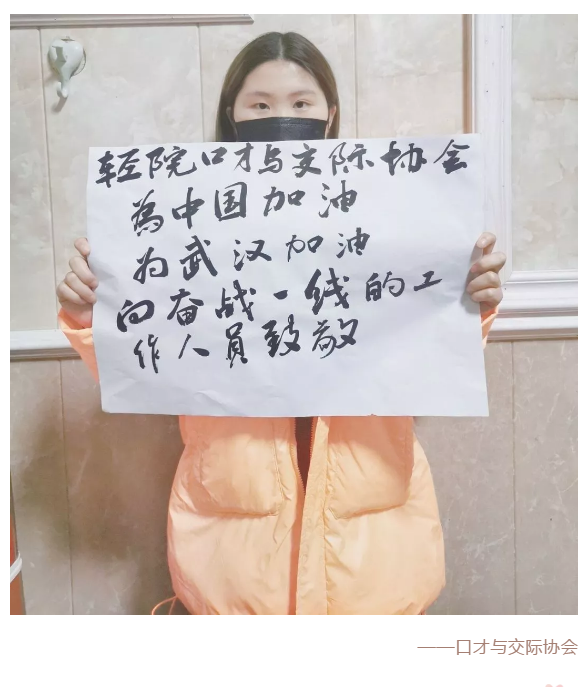 轻院口才与交际协会
為中国加油
为武汉加油
向奋战一线的工
作人員致敬
——口才与交际协会